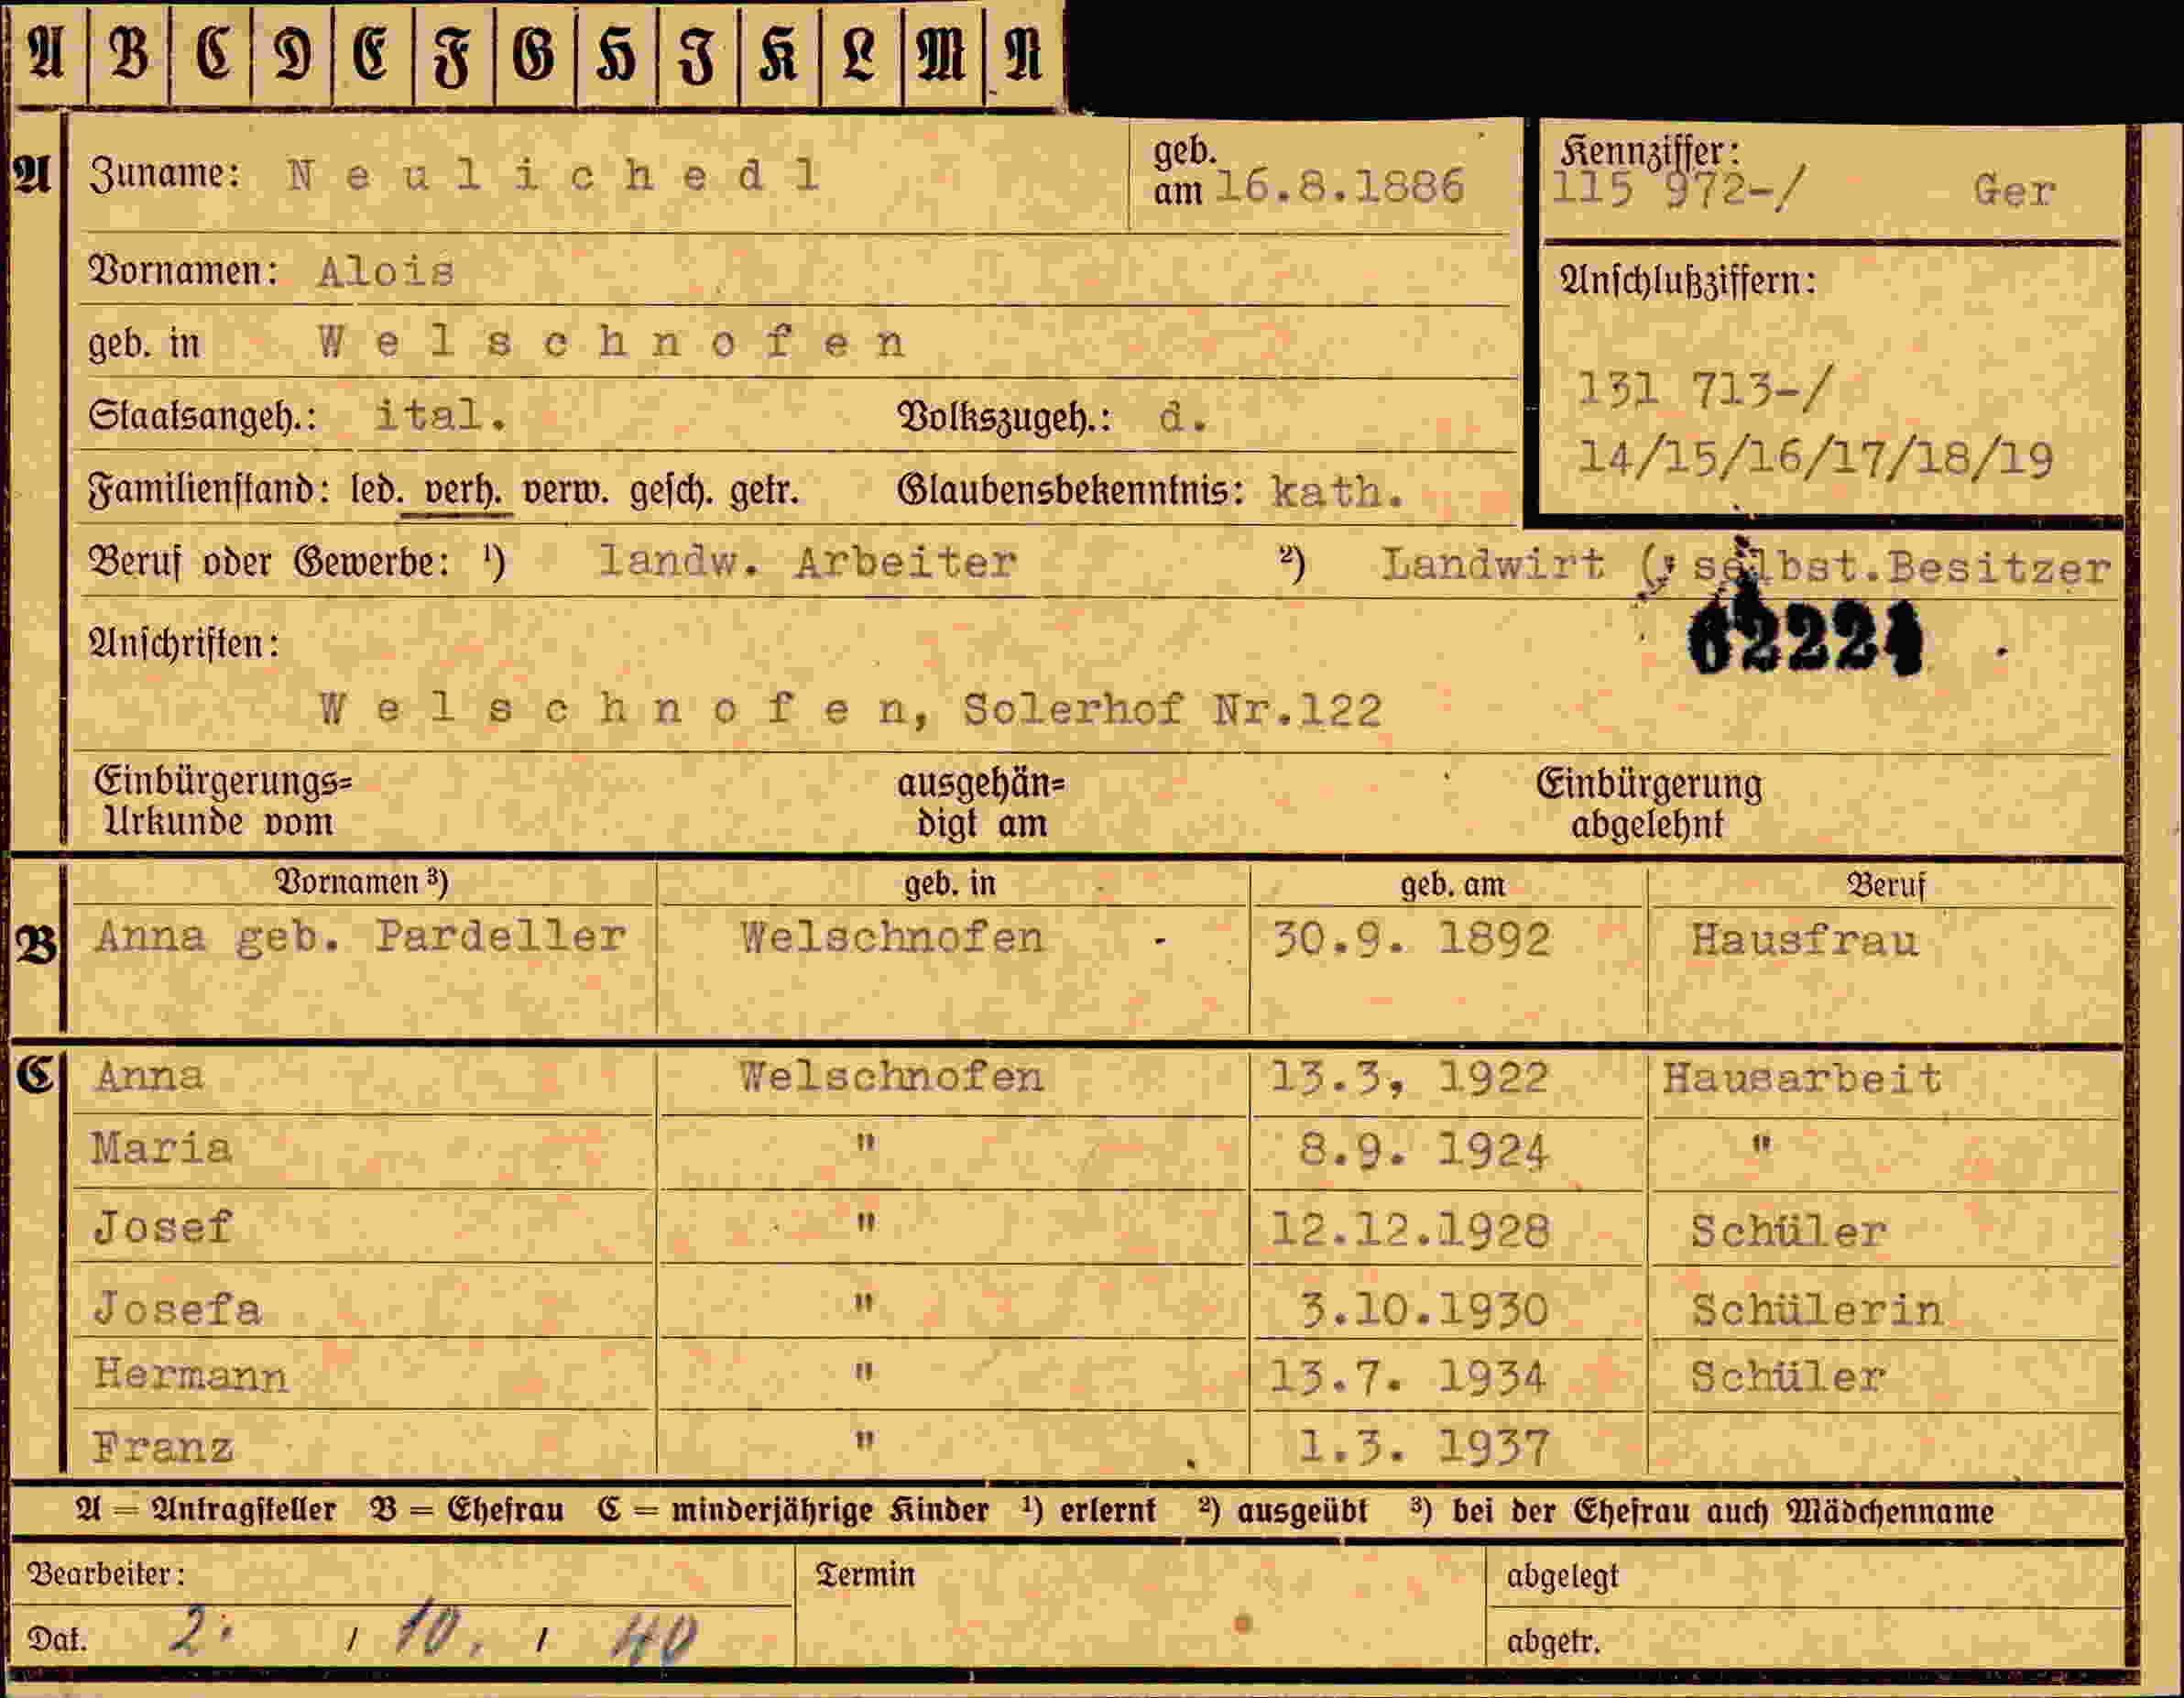 A B C D E F G H J K L M N
A Zuname: Neulichedl geb. am 16.8.1886 Kennziffer: 115 972-/ Ger
Vornamen: Alois Anschlußziffern:
geb. in Welschnofen
131 713-/
Staatsangeh.: ital. Volkszugeh.: d.
14/15/16/17/18/19
Familienstand: led. verh. verw. gesch. getr. Glaubensbekenntnis: kath.
Beruf oder Gewerbe: ¹) landw. Arbeiter ²) Landwirt (, selbst.Besitzer
Anschriften: 62224
Welschnofen, Solerhof Nr.122
Einbürgerungs= ausgehän= Einbürgerung
Urkunde vom digt am abgelehnt
Vornamen ³) geb. in geb. am Beruf
B Anna geb. Pardeller Welschnofen - 30.9. 1892 Hausfrau
C Anna Welschnofen 13.3, 1922 Hausarbeit
Maria " 8.9. 1924 "
Josef " 12.12.1928 Schüler
Josefa " 3.10.1930 Schülerin
Hermann " 13.7. 1934 Schüler
Franz " 1.3. 1937
A = Antragsteller B = Ehefrau C = minderjährige Kinder ¹) erlernt ²) ausgeübt ³) bei der Ehefrau auch Mädchenname
Bearbeiter: Termin abgelegt
Dat. 2. / 10. / 40 abgetr.